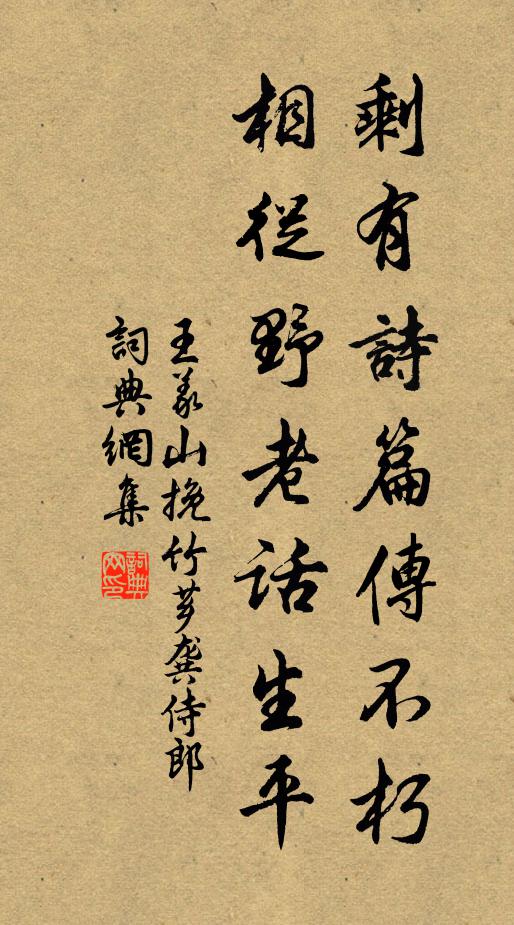 剩有詩篇傳不朽
相從野老話生平
王義山挽竹芗龔侍郎
詞典網集
詞典網印